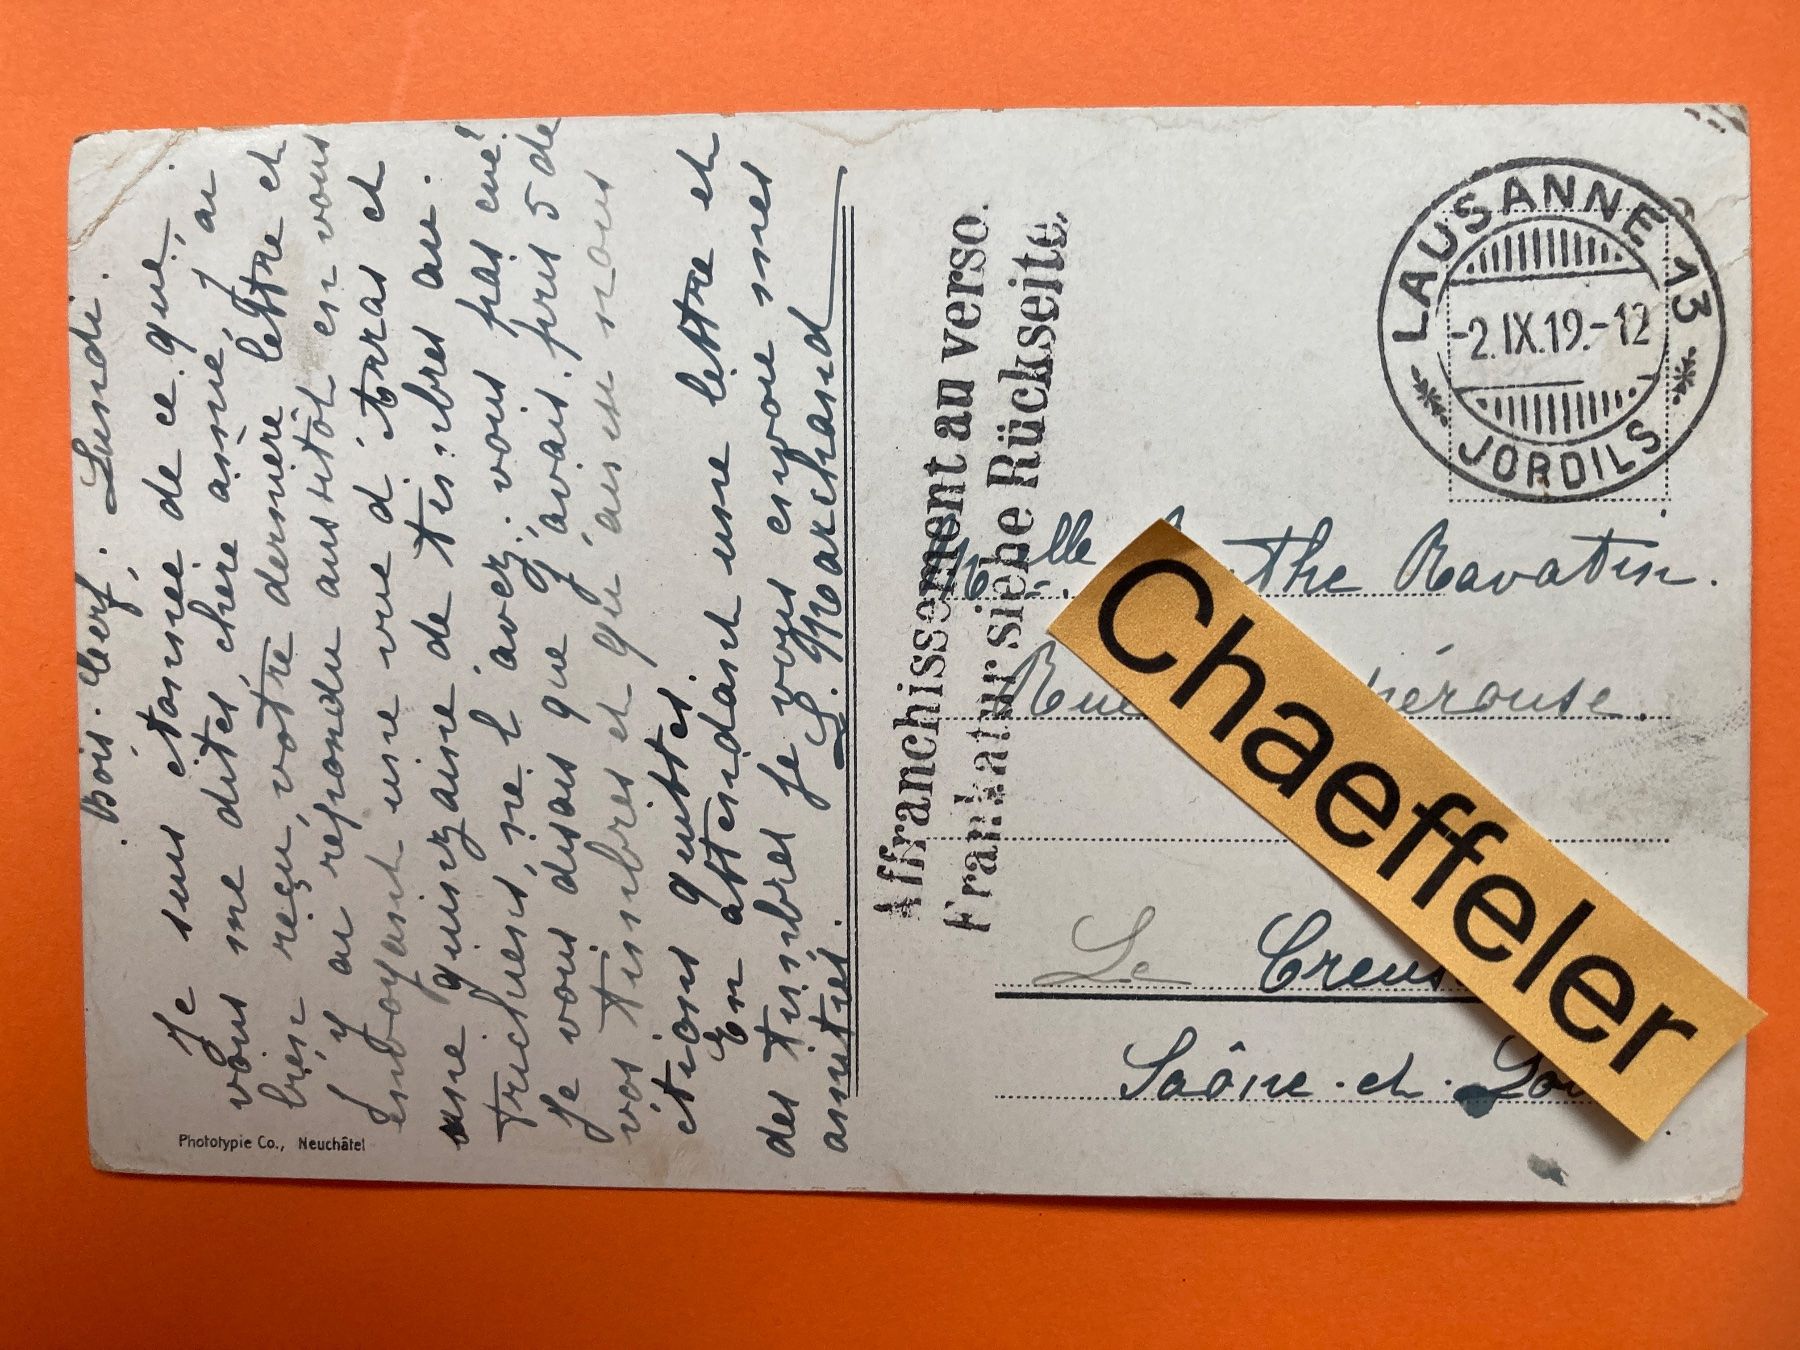 Bois-Cerf, Lundi.
Je suis étonnée de ce que,
vous me dites chère amie, j'ai
bien reçu, votre dernière lettre et
j'y ai répondu aussitôt en vous
envoyant une vue d'Arras et
une quinzaine de timbres au.
trichiens, ne l'avez-vous pas eue?
Je vous disais que j'avais pris 5 de
vos timbres et qu'ainsi nous
étions quittes.
En attendant une lettre et
des timbres je vous envoie mes
amitiés. S. Marchand
Phototypie Co., Neuchâtel
Affranchissement au verso.
Frankatur siehe Rückseite.
LAUSANNE 13
-2.IX.19.-12
JORDILS
Melle the Ravatin.
Rue pérouse.
Le Creus
Saône-et-Loi
Chaeffeler